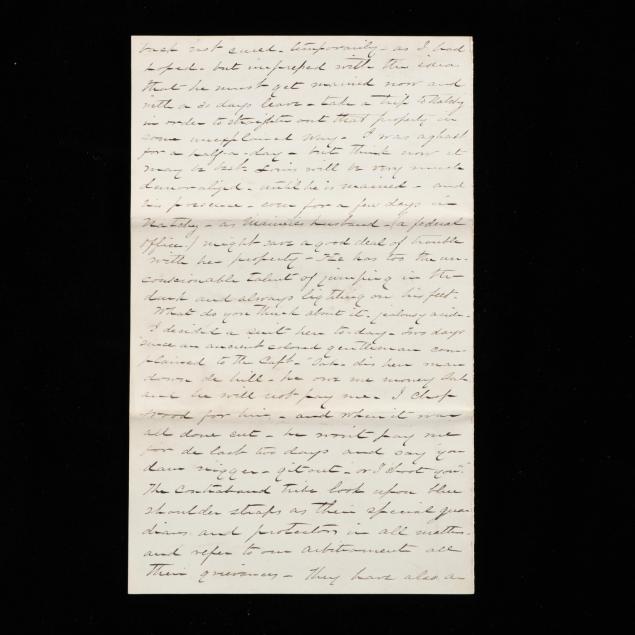 back not cured - temporarily - as I had
hoped - but impressed with the idea
that he must get married now and
with a 30 days leave - take a trip to Natchy
in order to straighten out that property in
some unexplained way - I was aghast
for a half-a-day - but think now it
may be best. Louis will be very much
demoralized - until he is married - and
his presence - even for a few days in
Natchy - as Mamie's husband - (a federal
officer) might save a good deal of trouble
with her property - He has too the un-
conscionable talent of jumping in the
dark and always lighting on his feet.
What do you think about it - jealousy aside -
I decided a suit here to-day - Two days
since an ancient colored gentleman com-
plained to the Capt - "Dat dis her man
down de hill - he owe me money Dat
and he will not pay me - I chop
wood for him - and when it was
all done cut - he won't pay me
for de last two days and say 'you
dam nigger - git out - or I shoot you'"
The Contraband tribe look upon blue
shoulder straps as their special guar
dians and protectors in all matters
and refer to our arbitrament all
their grievances - They have also a